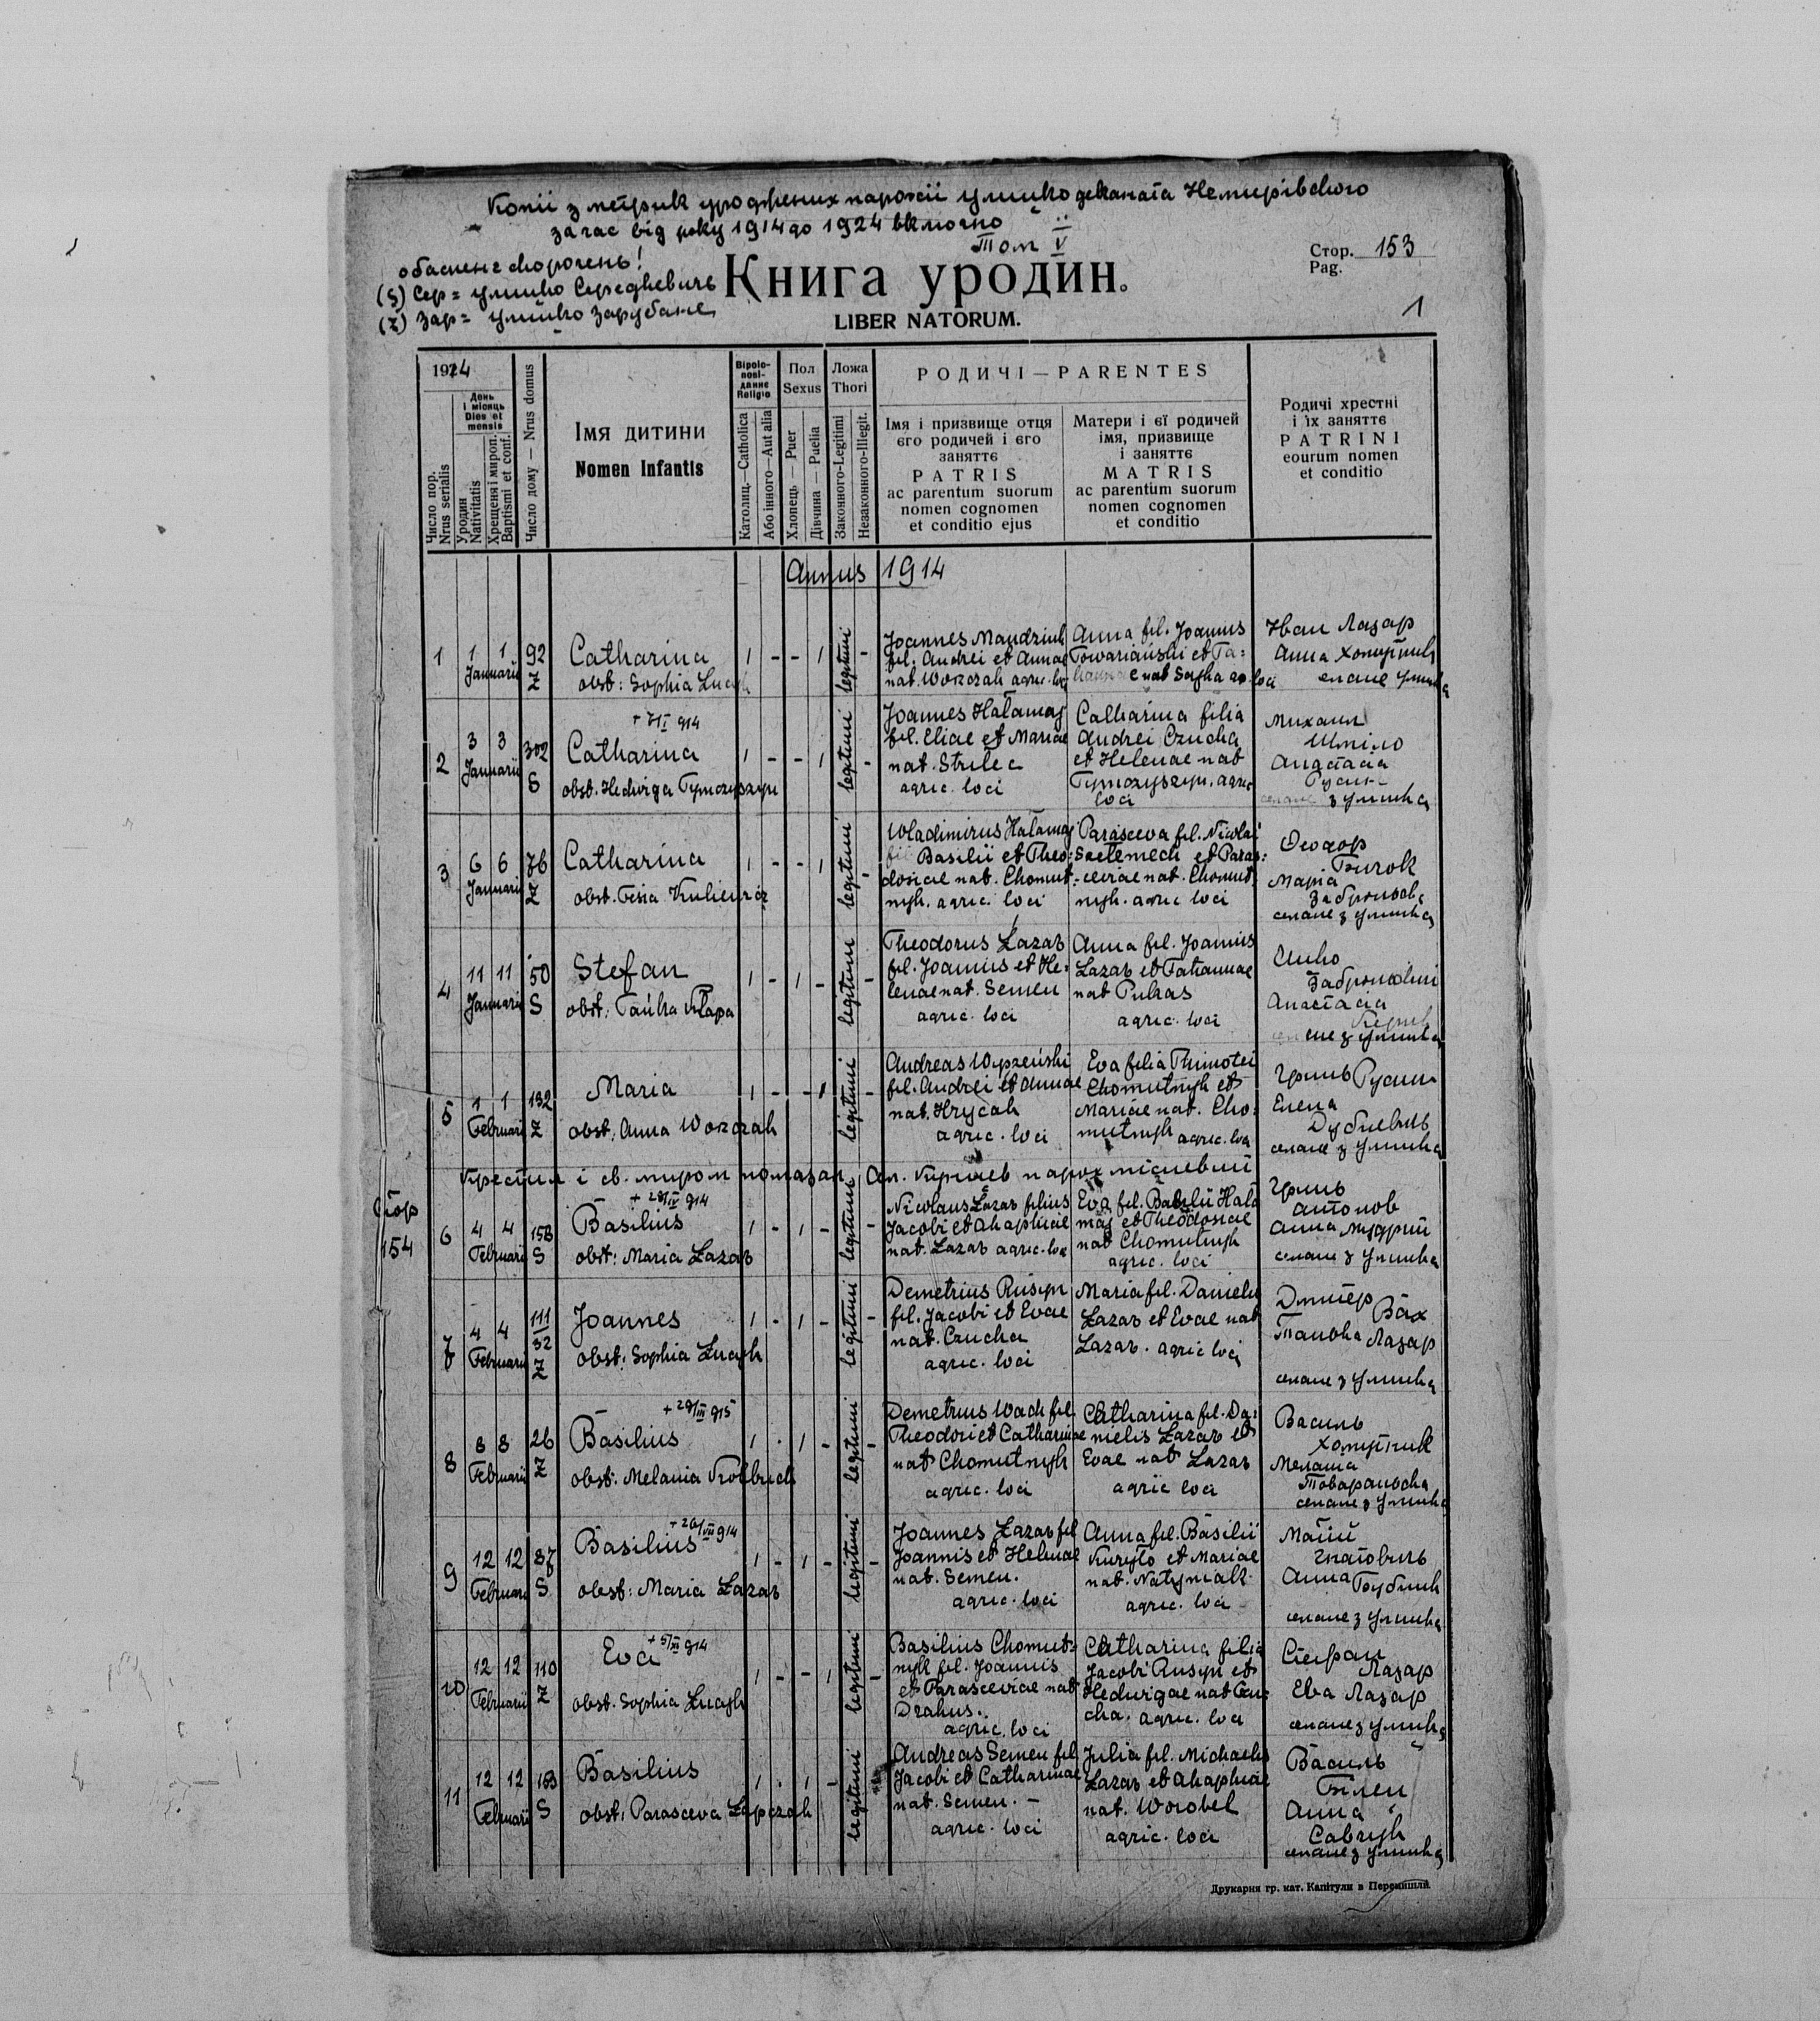 Копії з метрик уроджених парохії Улицко деканата Немирівского
за час від року 1914 до 1924 включно
Том V
(S) Сер = Улицко Середкевичь
(Z) Зар = Улицко Зарубане
Книга уродин.
LIBER NATORUM.
Стор. 153
Pag.
1
1914
Число пор.
Nrus serialis
День
і місяць
Dies et
mensis
Уродин
Nativitatis
Хрещеня і миропом.
Baptismi et conf.
Число дому — Nrus domus
Імя дитини
Nomen Infantis
Віроіспові-
данне
Religio
Католиц.—Catholica
Або інного—Aut alia
Пол
Sexus
Хлопець — Puer
Дівчина — Puella
Ложа
Thori
Законного-Legitimi
Незаконного-Illegit.
РОДИЧІ — PARENTES
Імя і призвище отця
єго родичей і єго
занятте
PATRIS
ac parentum suorum
nomen cognomen
et conditio ejus
Матери і єї родичей
імя, призвище
і занятте
MATRIS
ac parentum suorum
nomen cognomen
et conditio
Родичі хрестні
і їх занятте
PATRINI
eourum nomen
et conditio
Annus 1914
1 1 1 Januarii 92 Z
Catharina
obst: Sophia
1 - - 1 legitimi -
Joannes Mandziuk
fil. Andrei et Annae
nat. Worczak agric. loci
Anna fil. Joannis
Towariański et Ta=
nat
Іван Лазар
Анна Хомутник
селяне Улицка
2 3 3 Januarii 302 S
+ 7/I 914
Catharina
obst. Hedwiga Tymczyszyn
1 - - 1 legitimi -
Joannes Hałamaj
fil. Eliae et Mariae
nat. Strilec
agric. loci
Catharina filia
Andrei Czucha
et Helenae nat
Tymczyszyn. agric
loci
Михаил
Анастасія
Русин
з Улицка
3 6 6 Januarii 76 Z
Catharina
obst. Tesia
1 - - 1 legitimi -
Wladimirus Hałamaj
fil Basilii et Theo=
dosiae nat. Chomut=
nyk. agric. loci
Parasceva fil. Nicolai
et Paras=
cevae nat. Chomut=
nyk. agric loci
Теодор
Марія
селяне з Улицка
4 11 11 Januarii 50 S
Stefan
obst. Tańka Kłapa
1 - 1 - legitimi -
Theodorus Łazar
fil. Joannis et He=
lenae nat. Semen
agric. loci
Anna fil. Joannis
Łazar et Tatiannae
nat
agric. loci
Анастасія
з Улицка
5 1 1 Februarii 132 Z
Maria
obst. Anna Worczak
1 - - 1 legitimi -
Andreas Wyszeński
fil. Andrei et Annae
nat. Hrycak
agric. loci
Eva filia Thimotei
Chomutnyk et
Mariae nat. Cho=
mutnyk agric. loci
Гринь Русин
Елена
селяне з Улицка
Крестил і св. миром помазал парох місцевий
Стор
154
6 4 4 Februarii 158 S
+ 28/IV 914
Basilius
obst: Maria Łazar
1 - 1 - legitimi -
Nicolaus Łazar filius
Jacobi et Ahaphiae
nat. Łazar agric. loci
Eva fil. Basilii Hała
maj et Theodosiae
nat Chomutnyk
agric. loci
Гринь
Антонов
Анна Мудрий
селяне з Улицка
7 4 4 Februarii 111 32 Z
Joannes
obst: Sophia
1 - 1 - legitimi -
Demetrius Rusyn
fil. Jacobi et Evae
nat. Czucha
agric. loci
Maria fil. Danielis
Łazar et Evae nat
Łazar. agric loci
Дмитер
Вах
Танька Лазар
селяне з Улицка
8 8 8 Februarii 26 Z
+ 29/III 915
Basilius
obst: Melania
1 - 1 - legitimi -
Demetrius Wach fil.
Theodori et Catharinae
nat Chomutnyk
agric. loci
Catharina fil. Da=
nielis Łazar et
Evae nat Łazar
agric loci
Василь
Хомутник
Мелания
селяне з Улицка
9 12 12 Februarii 87 S
+ 26/VII 914
Basilius
obst: Maria Łazar
1 - 1 - legitimi -
Joannes Łazar fil
Joannis et Helenae
nat. Semen.
agric. loci
Anna fil. Basilii
Kuryło et Mariae
nat. Natyniak
agric. loci
Матій
Гнатовичь
Анна
селяне з Улицка
10 12 12 Februarii 110 Z
Eva
obst. Sophia
1 - - 1 legitimi -
Basilius Chomut=
nyk fil. Joannis
et Parasceviae nat
Drahus.
agric. loci
Catharina filia
Jacobi Rusyn et
Hedwigae nat Czu=
cha. agric. loci
Стефан
Лазар
Ева Лазар
селяне з Улицка
11 12 12 Februarii 163 S
Basilius
obst: Parasceva Łapczak
1 - 1 - legitimi
Andreas Semen fil
Jacobi et Catharinae
nat. Semen. -
agric. loci
Julia fil. Michaelis
Łazar et Ahaphiae
nat. Worobel
agric. loci
Василь
Білен
Анна
селяне з Улицка
Друкарня гр. кат. Капітули в Перемишли.